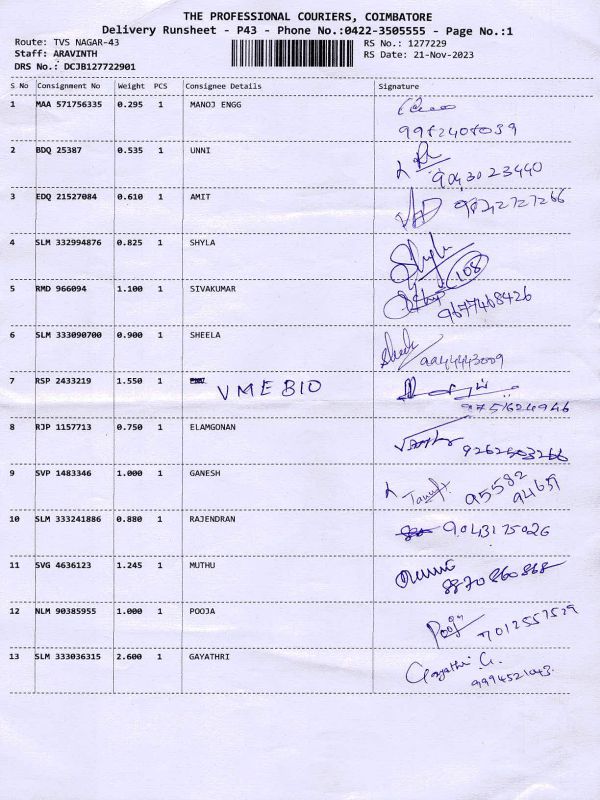 THE PROFESSIONAL COURIERS, COIMBATORE
Delivery Runsheet - P43 - Phone No.:0422-3505555 - Page No.:1
Route: TVS NAGAR-43 RS No.: 1277229
Staff: ARAVINTH RS Date: 21-Nov-2023
DRS No.: DCJB127722901
S No Consignment No Weight PCS Consignee Details Signature
1 MAA 571756335 0.295 1 MANOJ ENGG
2 BDQ 25387 0.535 1 UNNI
9043023440
3 EDQ 21527084 0.610 1 AMIT
4 SLM 332994876 0.825 1 SHYLA
Shyla
108
5 RMD 966094 1.100 1 SIVAKUMAR
9677468426
6 SLM 333090700 0.900 1 SHEELA
Sheela
9944443009
7 RSP 2433219 1.550 1 VMEBIO
9751624946
8 RJP 1157713 0.750 1 ELAMGONAN
9 SVP 1483346 1.000 1 GANESH
95582
94659
10 SLM 333241886 0.880 1 RAJENDRAN
9043175026
11 SVG 4636123 1.245 1 MUTHU
8870860868
12 NLM 90385955 1.000 1 POOJA
Pooja
7012557529
13 SLM 333036315 2.600 1 GAYATHRI
Gayathri G.
9994521043.